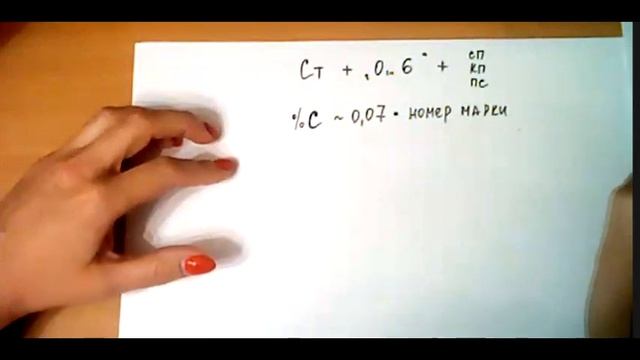 Ст + "0...6" + сп
кп
пс
%С ~ 0,07 • номер марки